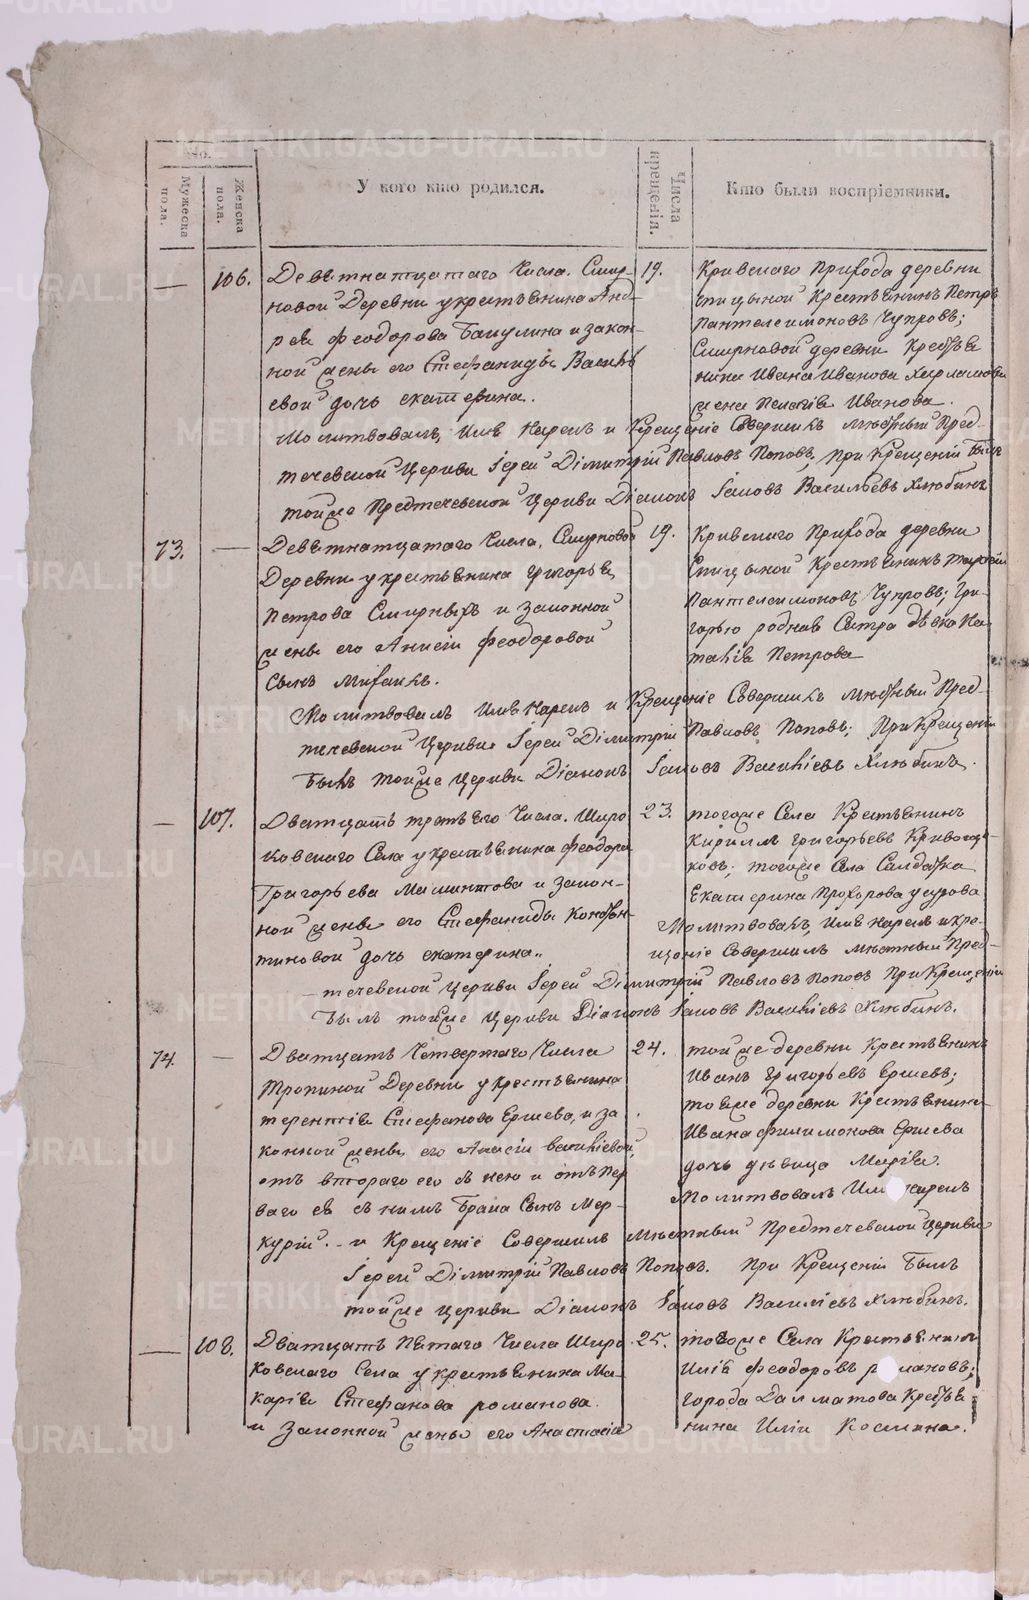 No.
Мужеска пола.
Женска пола.
У кого кто родился.
Числа крещенія.
Кто были воспріемники.
106.
Девѣтнатцатаго Числа. Смир-
новой Деревни у крестьѣнина Анд-
рея Феодорова Бакулина и закон-
ной жены его Стефаниды Василь
евой дочь екатерина.
19.
Кривскаго Прихода деревни
Спицыной Крестьѣнинъ Петръ
Пантелеимоновъ Чупровъ;
Смирновой деревни Крестьѣ
нина Ивана Иванова
жена Пелагія Иванова.
Молитвовалъ, Имѣ Нарелъ и Крещеніе Совершилъ мѣстный Пред-
течевской Церкви Іерей Дімитрій Павловъ Поповъ, При Крещеніи Былъ
тойже Предтечевской Церкви Діаконъ Іаковъ Васильевъ Хлюбинъ
73.
Девѣтнатцатаго Числа. Смирновой
Деревни у крестьѣнина Григорьѣ
Петрова Смирныхъ и Законной
жены его Анисіи Феодоровой
Сынъ Михаилъ.
19.
Кривскаго Прихода деревни
Спицыной Крестьѣнинъ
Пантелеимоновъ Чупровъ; Гри-
горью родная Сестра дѣвка На
талія Петрова
Молитвовалъ Имѣ Нарелъ и Крещеніе Совершилъ Мѣстный Пред-
течевской Церкви Іерей Дімитрій Павловъ Поповъ; При Крещеніи
Былъ тойже Церкви Діаконъ Іаковъ Васильевъ Хлюбинъ.
107.
Дватцать третьѣго Числа. Широ
ковскаго Села у крестьѣнина Феодора
Григорьева Мамонтова и Закон-
ной жены его Стефаниды Констѣн
тиновой дочь екатерина.
23.
тогоже Села Крестьѣнинъ
Кириллъ Григорьевъ
ковъ; тогоже Села Салдатка
Екатерина Прохорова
Молитвовалъ, Имѣ Нарелъ и Кре-
щеніе Совершилъ мѣстный Пред-
течевской Церкви Іерей Дімитрій Павловъ Поповъ При Крещеніи
Былъ тойже Церкви Діаконъ Іаковъ Васильевъ Хлюбинъ.
74.
Дватцать Четвертаго Числа
Тропиной Деревни у Крестьѣнина
терентія Стефанова Ершева, и за
конной жены его Анисіи васильевой,
отъ втораго его съ нею и отъ пер
ваго еѣ съ нимъ Брака Сынъ Мер-
курій. - и Крещеніе Совершилъ Мѣстный Предтечевской Церкви
24.
тойже деревни Крестьѣнинъ
Иванъ Григорьевъ Ершевъ;
тоеже деревни Крестьѣнина
Ивана филимонова Ершева
дочь дѣвица Марія.
Молитвовалъ Имѣ Нарелъ
Іерей Дімитрій Павловъ Поповъ. При Крещеніи Былъ
тойже церкви Діаконъ Іаковъ Васильевъ Хлюбинъ.
108.
Дватцать Пятаго Числа Широ
ковскаго Села у крестьѣнина Ма-
карія Стефанова романова.
и Законной жены его Анастасіи
25.
тогоже Села Крестьѣнинъ
Илія Феодоровъ романовъ;
города Далматова Крестьѣ
нина Иліи Космина.